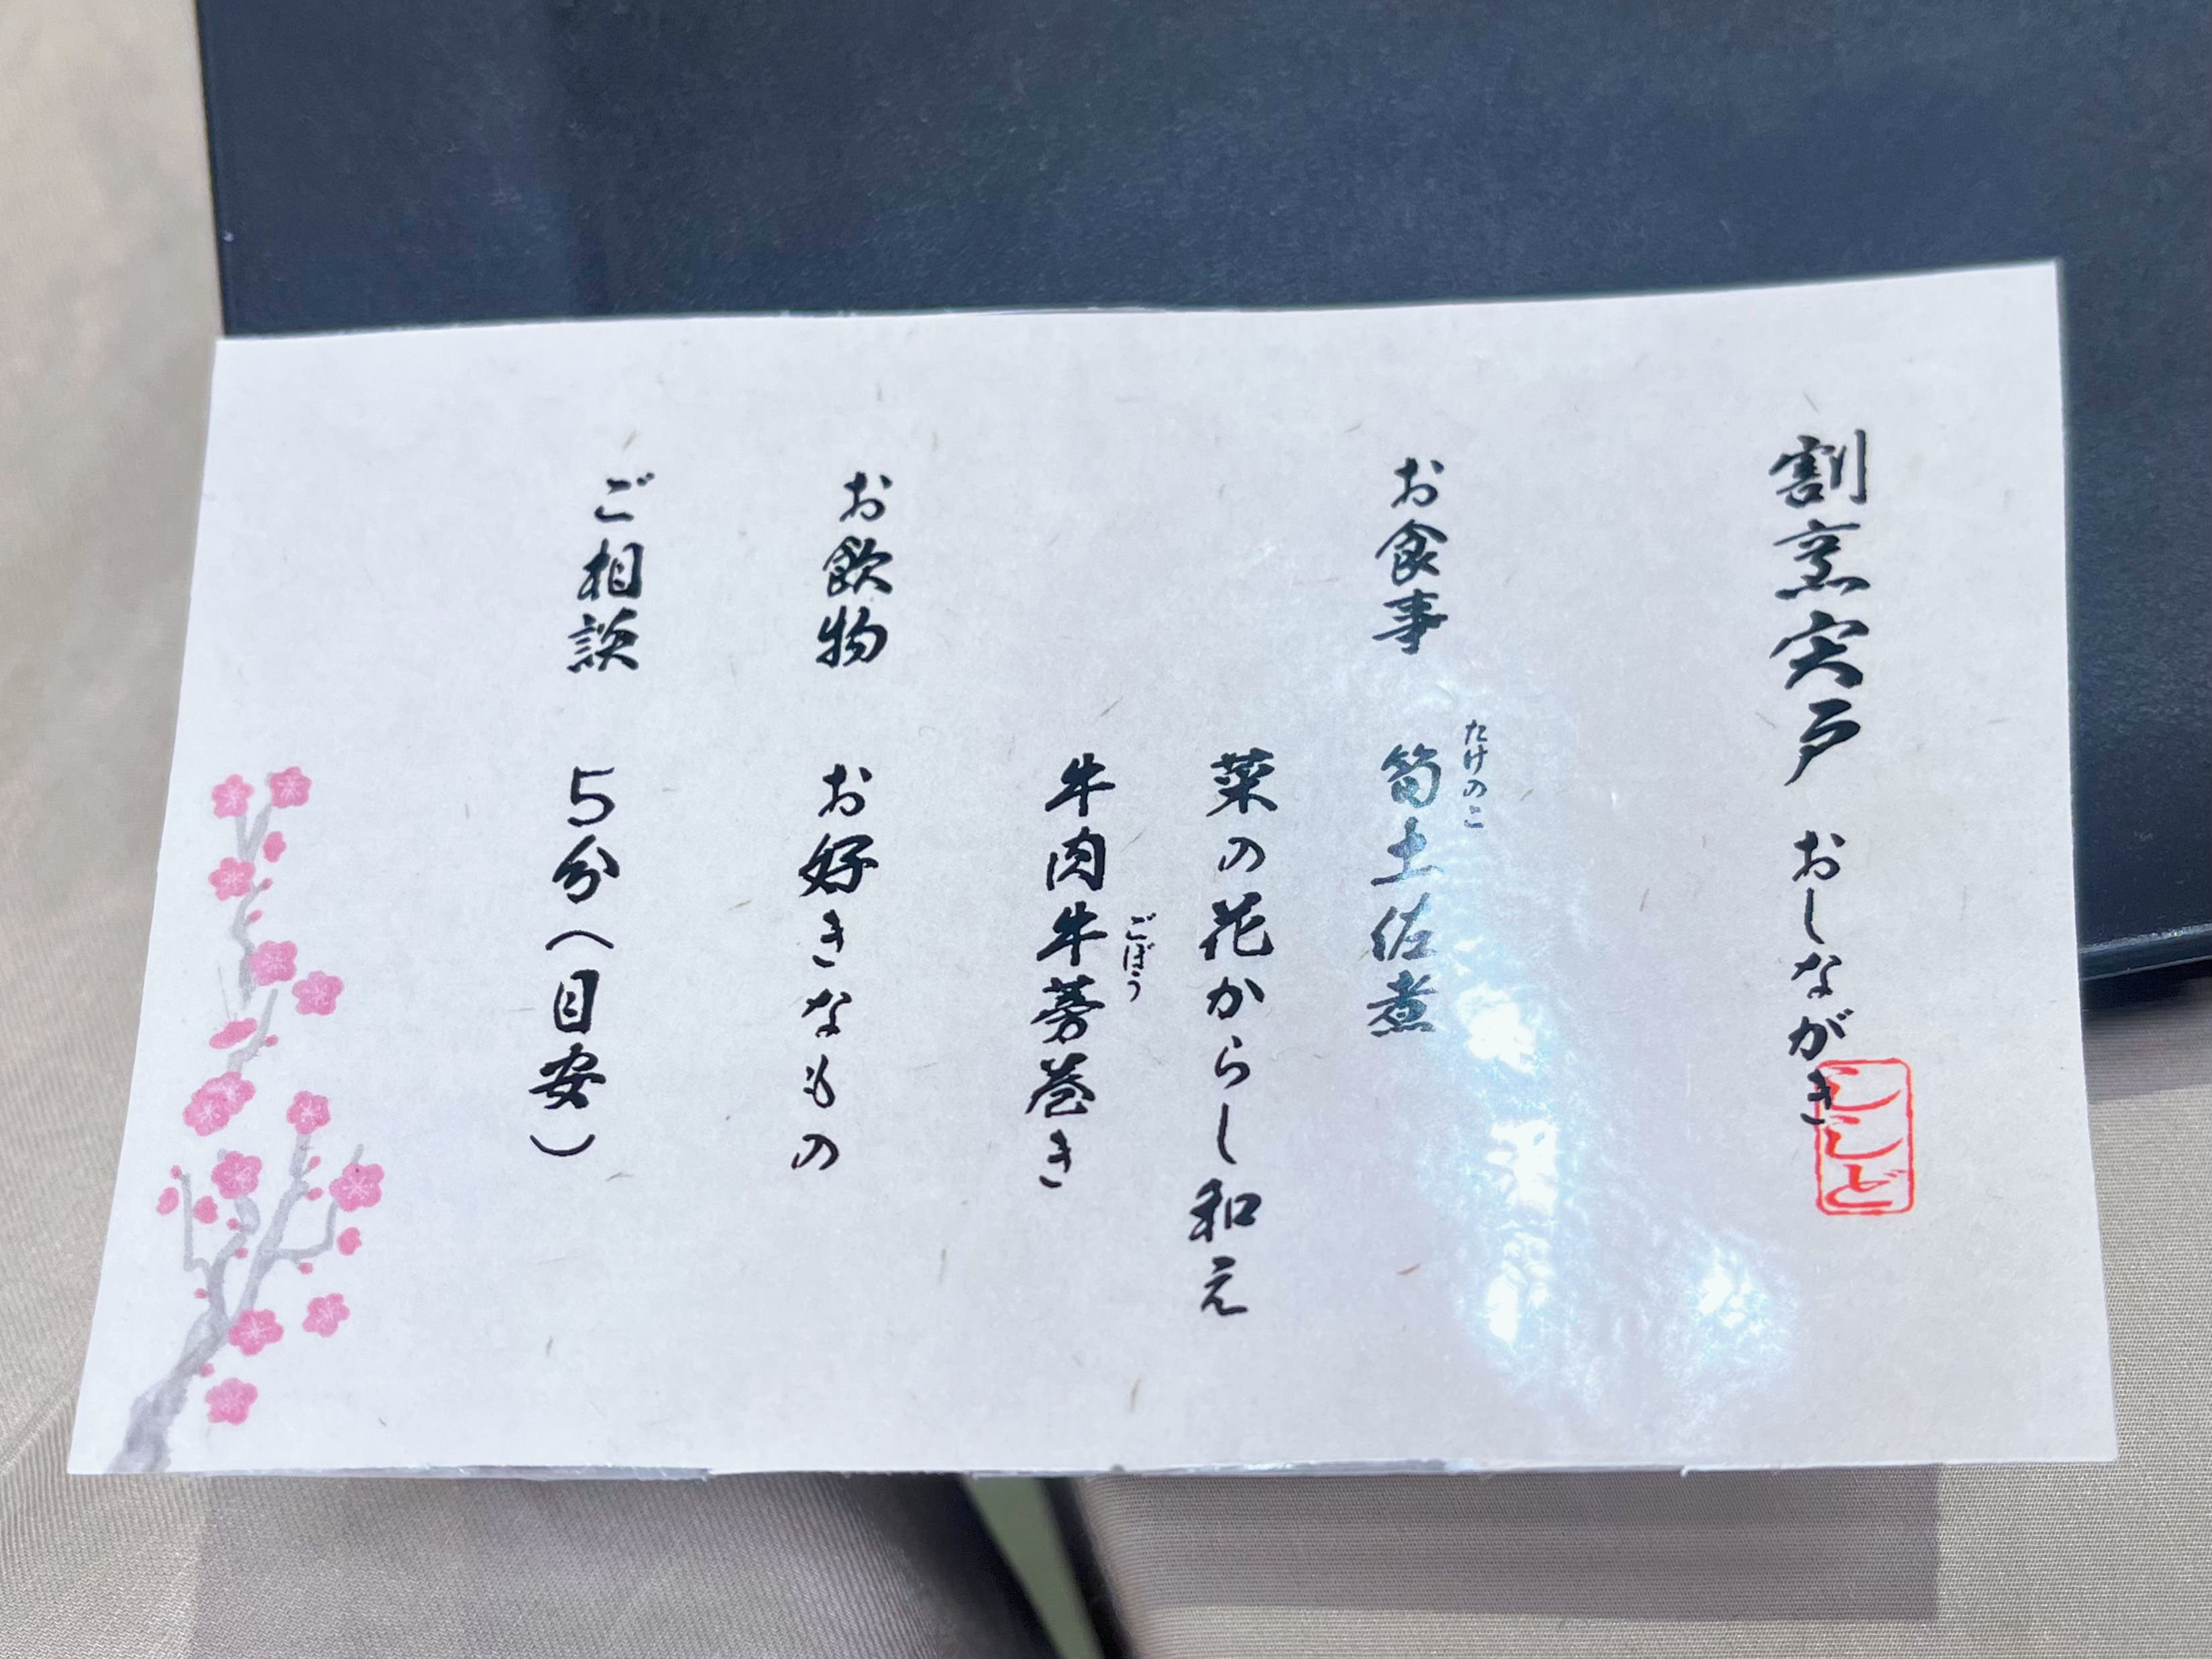 割烹宍戸 おしながき
ししど
お食事 筍土佐煮
たけのこ
菜の花からし和え
牛肉牛蒡巻き
ごぼう
お飲物 お好きなもの
ご相談 5分(目安)